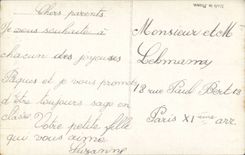 Chers parents.
Je vous souhaite à
chacun des joyeuses
Pâques et je vous promet
d'être toujours sage en
classe
Votre petite fille
qui vous aime
Suzanne
Monsieur et M
18 rue Paul Bert 18
Paris XI ème arr.